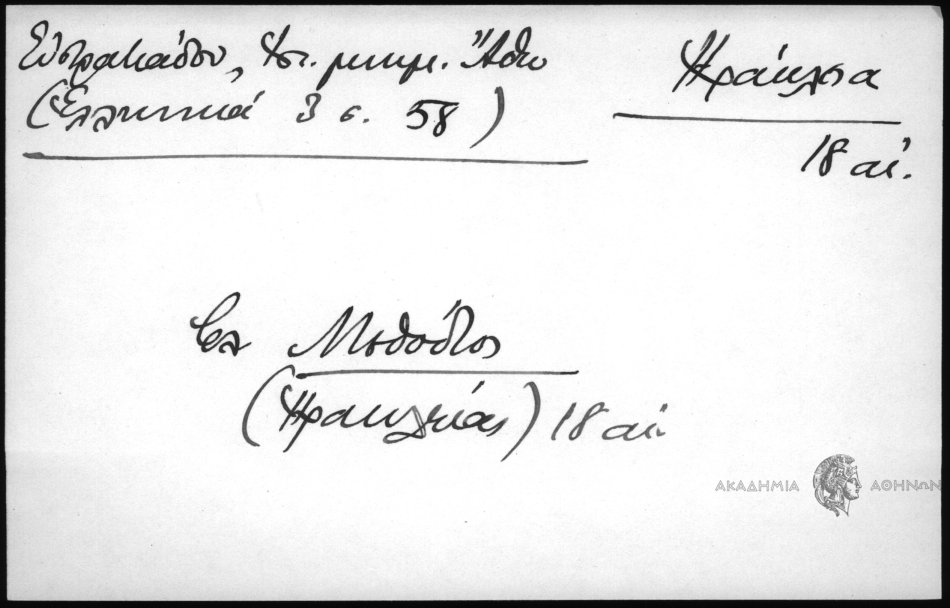 Εὐστρατιάδου, Ἱστ. μνημ. Ἄθω
(Ἑλληνικά 3 σ. 58)
Ἡράκλεια
18 αἰ.
βλ Μεθόδιος
(Ἡρακλείας) 18 αἰ.
ΑΚΑΔΗΜΙΑ ΑΘΗΝΩΝ